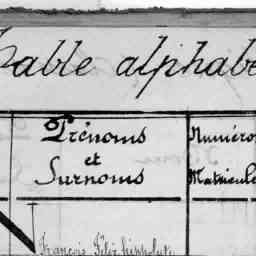 Table alphabé
Prénoms
et
Surnoms
Numéro
Matricule
François Félix hippolyte